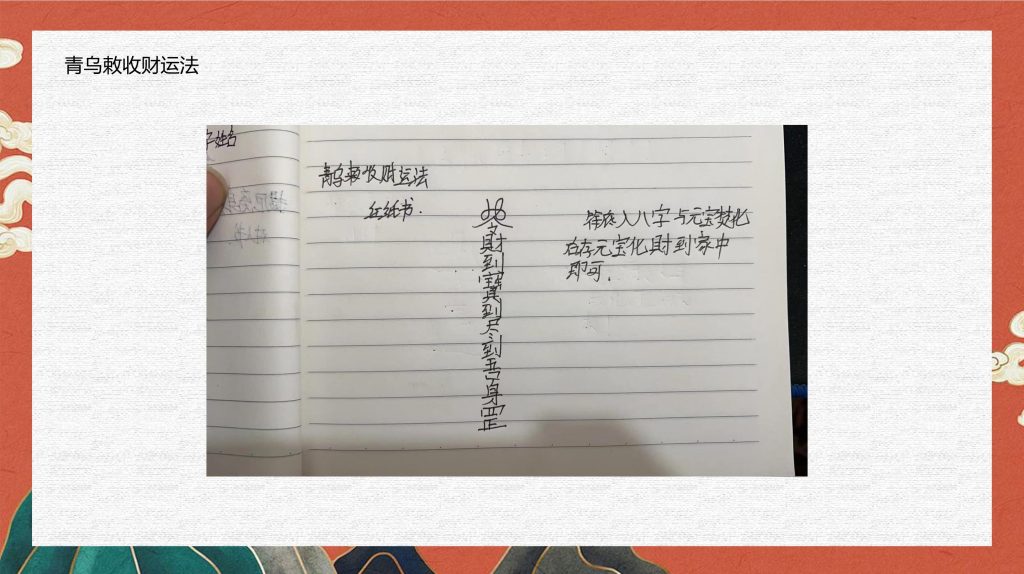 青乌敕收财运法
姓名
青乌敕收财运法
红纸书.
財到寶到尽到吾身罡
人八字与元宝焚化
存元宝化財到家中
即可.